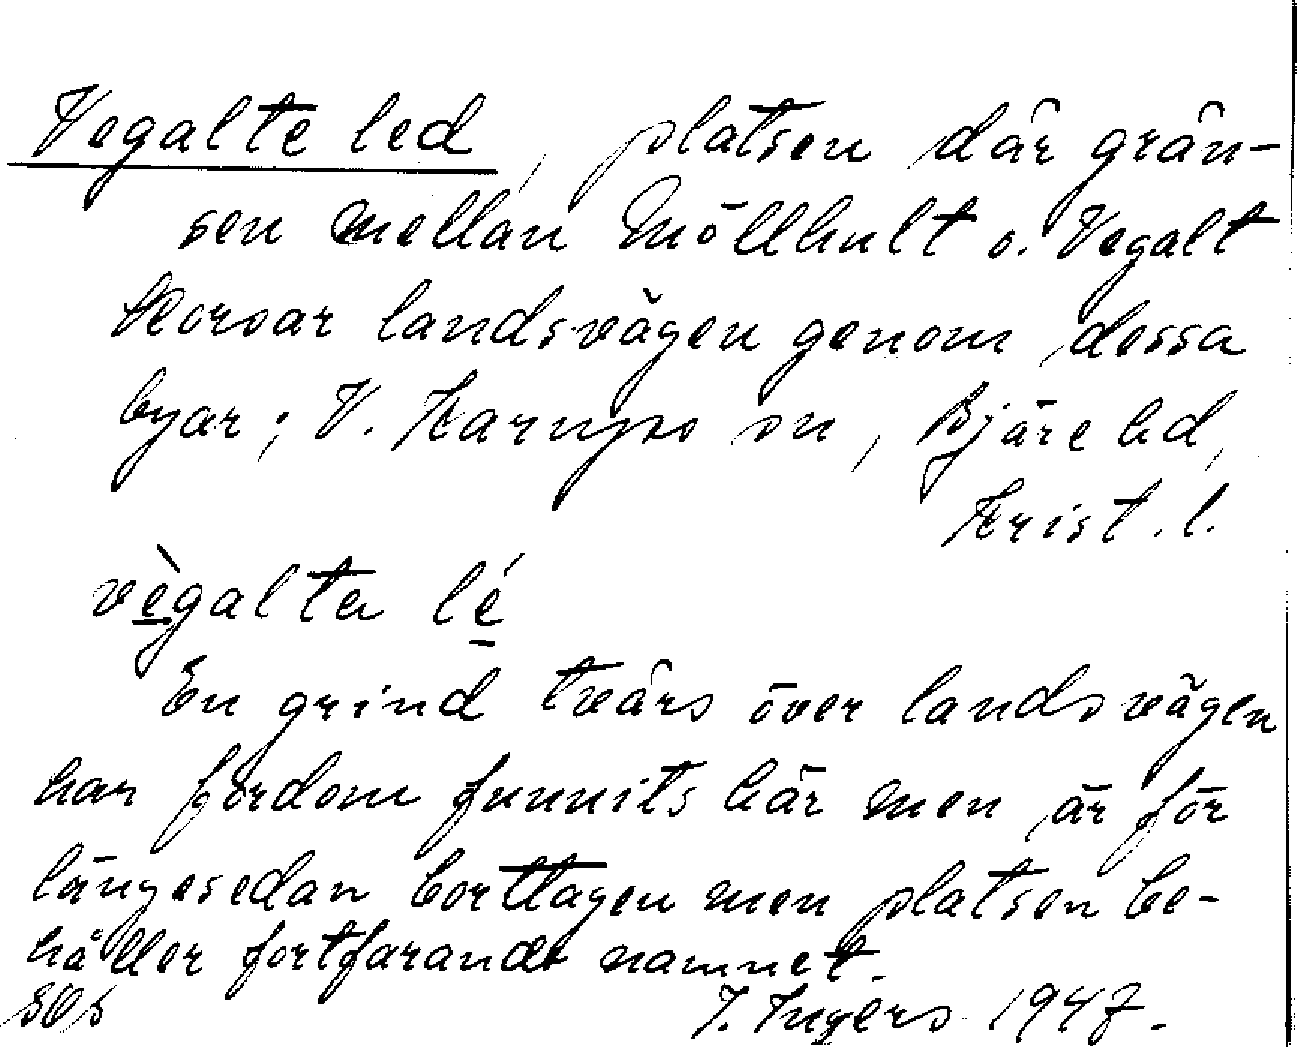 Vegalte led, platsen där grän-
sen mellan Möllhult o. Vegalt
korsar landsvägen genom dessa
byar; V. Karups sn, Bjäre hd,
Krist. l.
vègalta lé
En grind tvärs över landsvägen
har fordom funnits här men är för
längesedan borttagen men platsen be-
håller fortfarande namnet.
I. Ingers 1947.